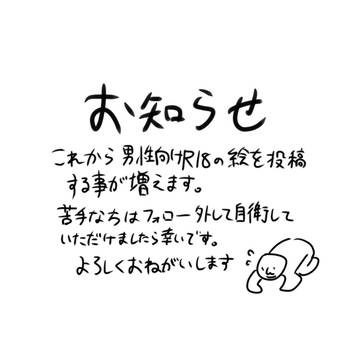 お知らせ
これから男性向けR18の絵を投稿
する事が増えます。
苦手なちはフォロー外して自衛して
いただけましたら幸いです。
よろしくおねがいします